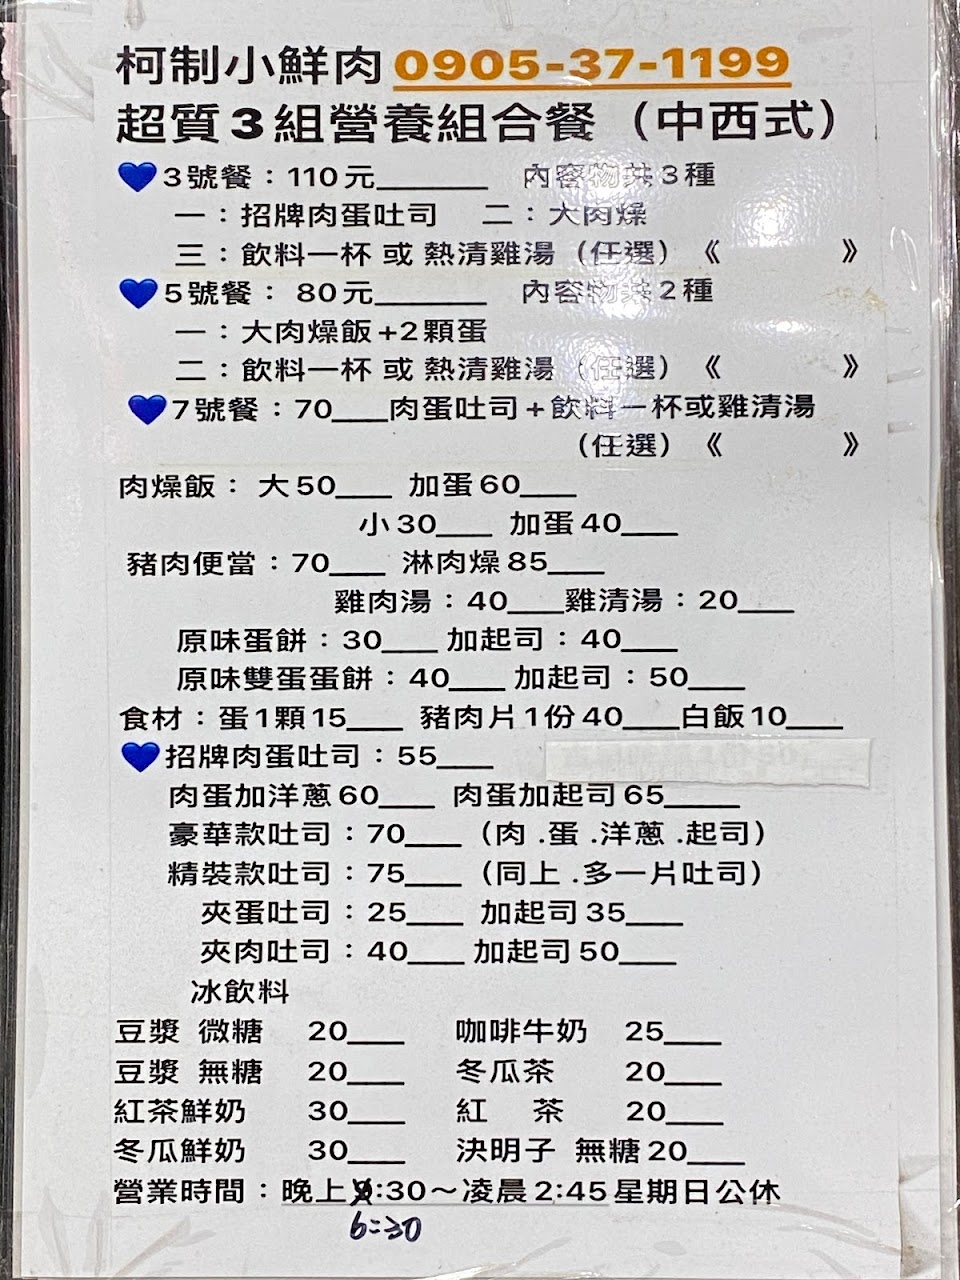 柯制小鮮肉 0905-37-1199
超質3組營養組合餐（中西式）
💙3號餐：110元______ 內容物共3種
一：招牌肉蛋吐司 二：大肉燥
三：飲料一杯 或 熱清雞湯（任選）《 》
💙5號餐： 80元______ 內容物共2種
一：大肉燥飯+2顆蛋
二：飲料一杯 或 熱清雞湯（任選）《 》
💙7號餐：70___肉蛋吐司+飲料一杯或雞清湯
（任選）《 》
肉燥飯： 大50___ 加蛋60___
小30___ 加蛋40___
豬肉便當：70___ 淋肉燥85___
雞肉湯：40___雞清湯：20___
原味蛋餅：30___ 加起司：40___
原味雙蛋蛋餅：40___ 加起司：50___
食材：蛋1顆15___ 豬肉片1份40___白飯10___
💙招牌肉蛋吐司：55___
肉蛋加洋蔥60___ 肉蛋加起司65____
豪華款吐司：70___（肉.蛋.洋蔥.起司）
精裝款吐司：75___（同上.多一片吐司）
夾蛋吐司：25___ 加起司35___
夾肉吐司：40___ 加起司50___
冰飲料
豆漿 微糖 20___ 咖啡牛奶 25___
豆漿 無糖 20___ 冬瓜茶 20___
紅茶鮮奶 30___ 紅 茶 20___
冬瓜鮮奶 30___ 決明子 無糖20___
營業時間：晚上:30～凌晨2:45星期日公休
6:30